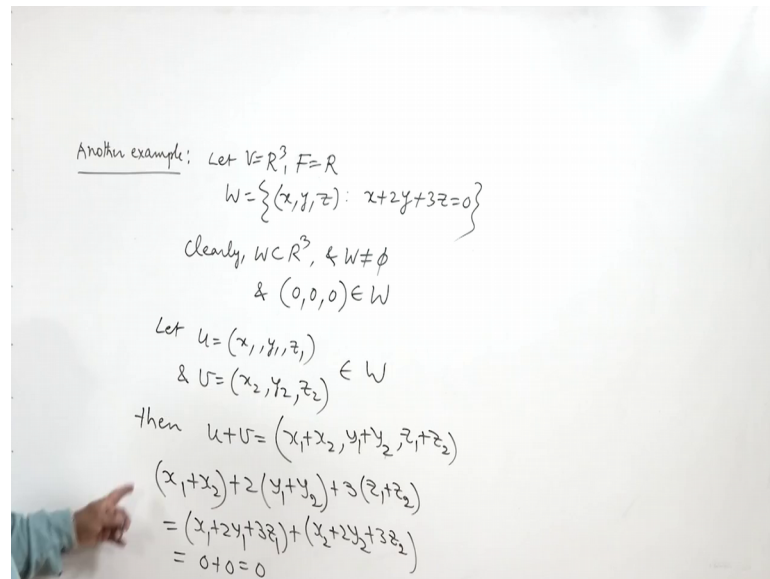 Another example: Let V=R³, F=R
W={(x,y,z): x+2y+3z=0}
Clearly, W⊂R³, & W≠ϕ
& (0,0,0)∈W
Let u=(x₁,y₁,z₁)
& v=(x₂,y₂,z₂) ∈ W
then u+v=(x₁+x₂,y₁+y₂,z₁+z₂)
(x₁+x₂)+2(y₁+y₂)+3(z₁+z₂)
=(x₁+2y₁+3z₁)+(x₂+2y₂+3z₂)
= 0+0=0